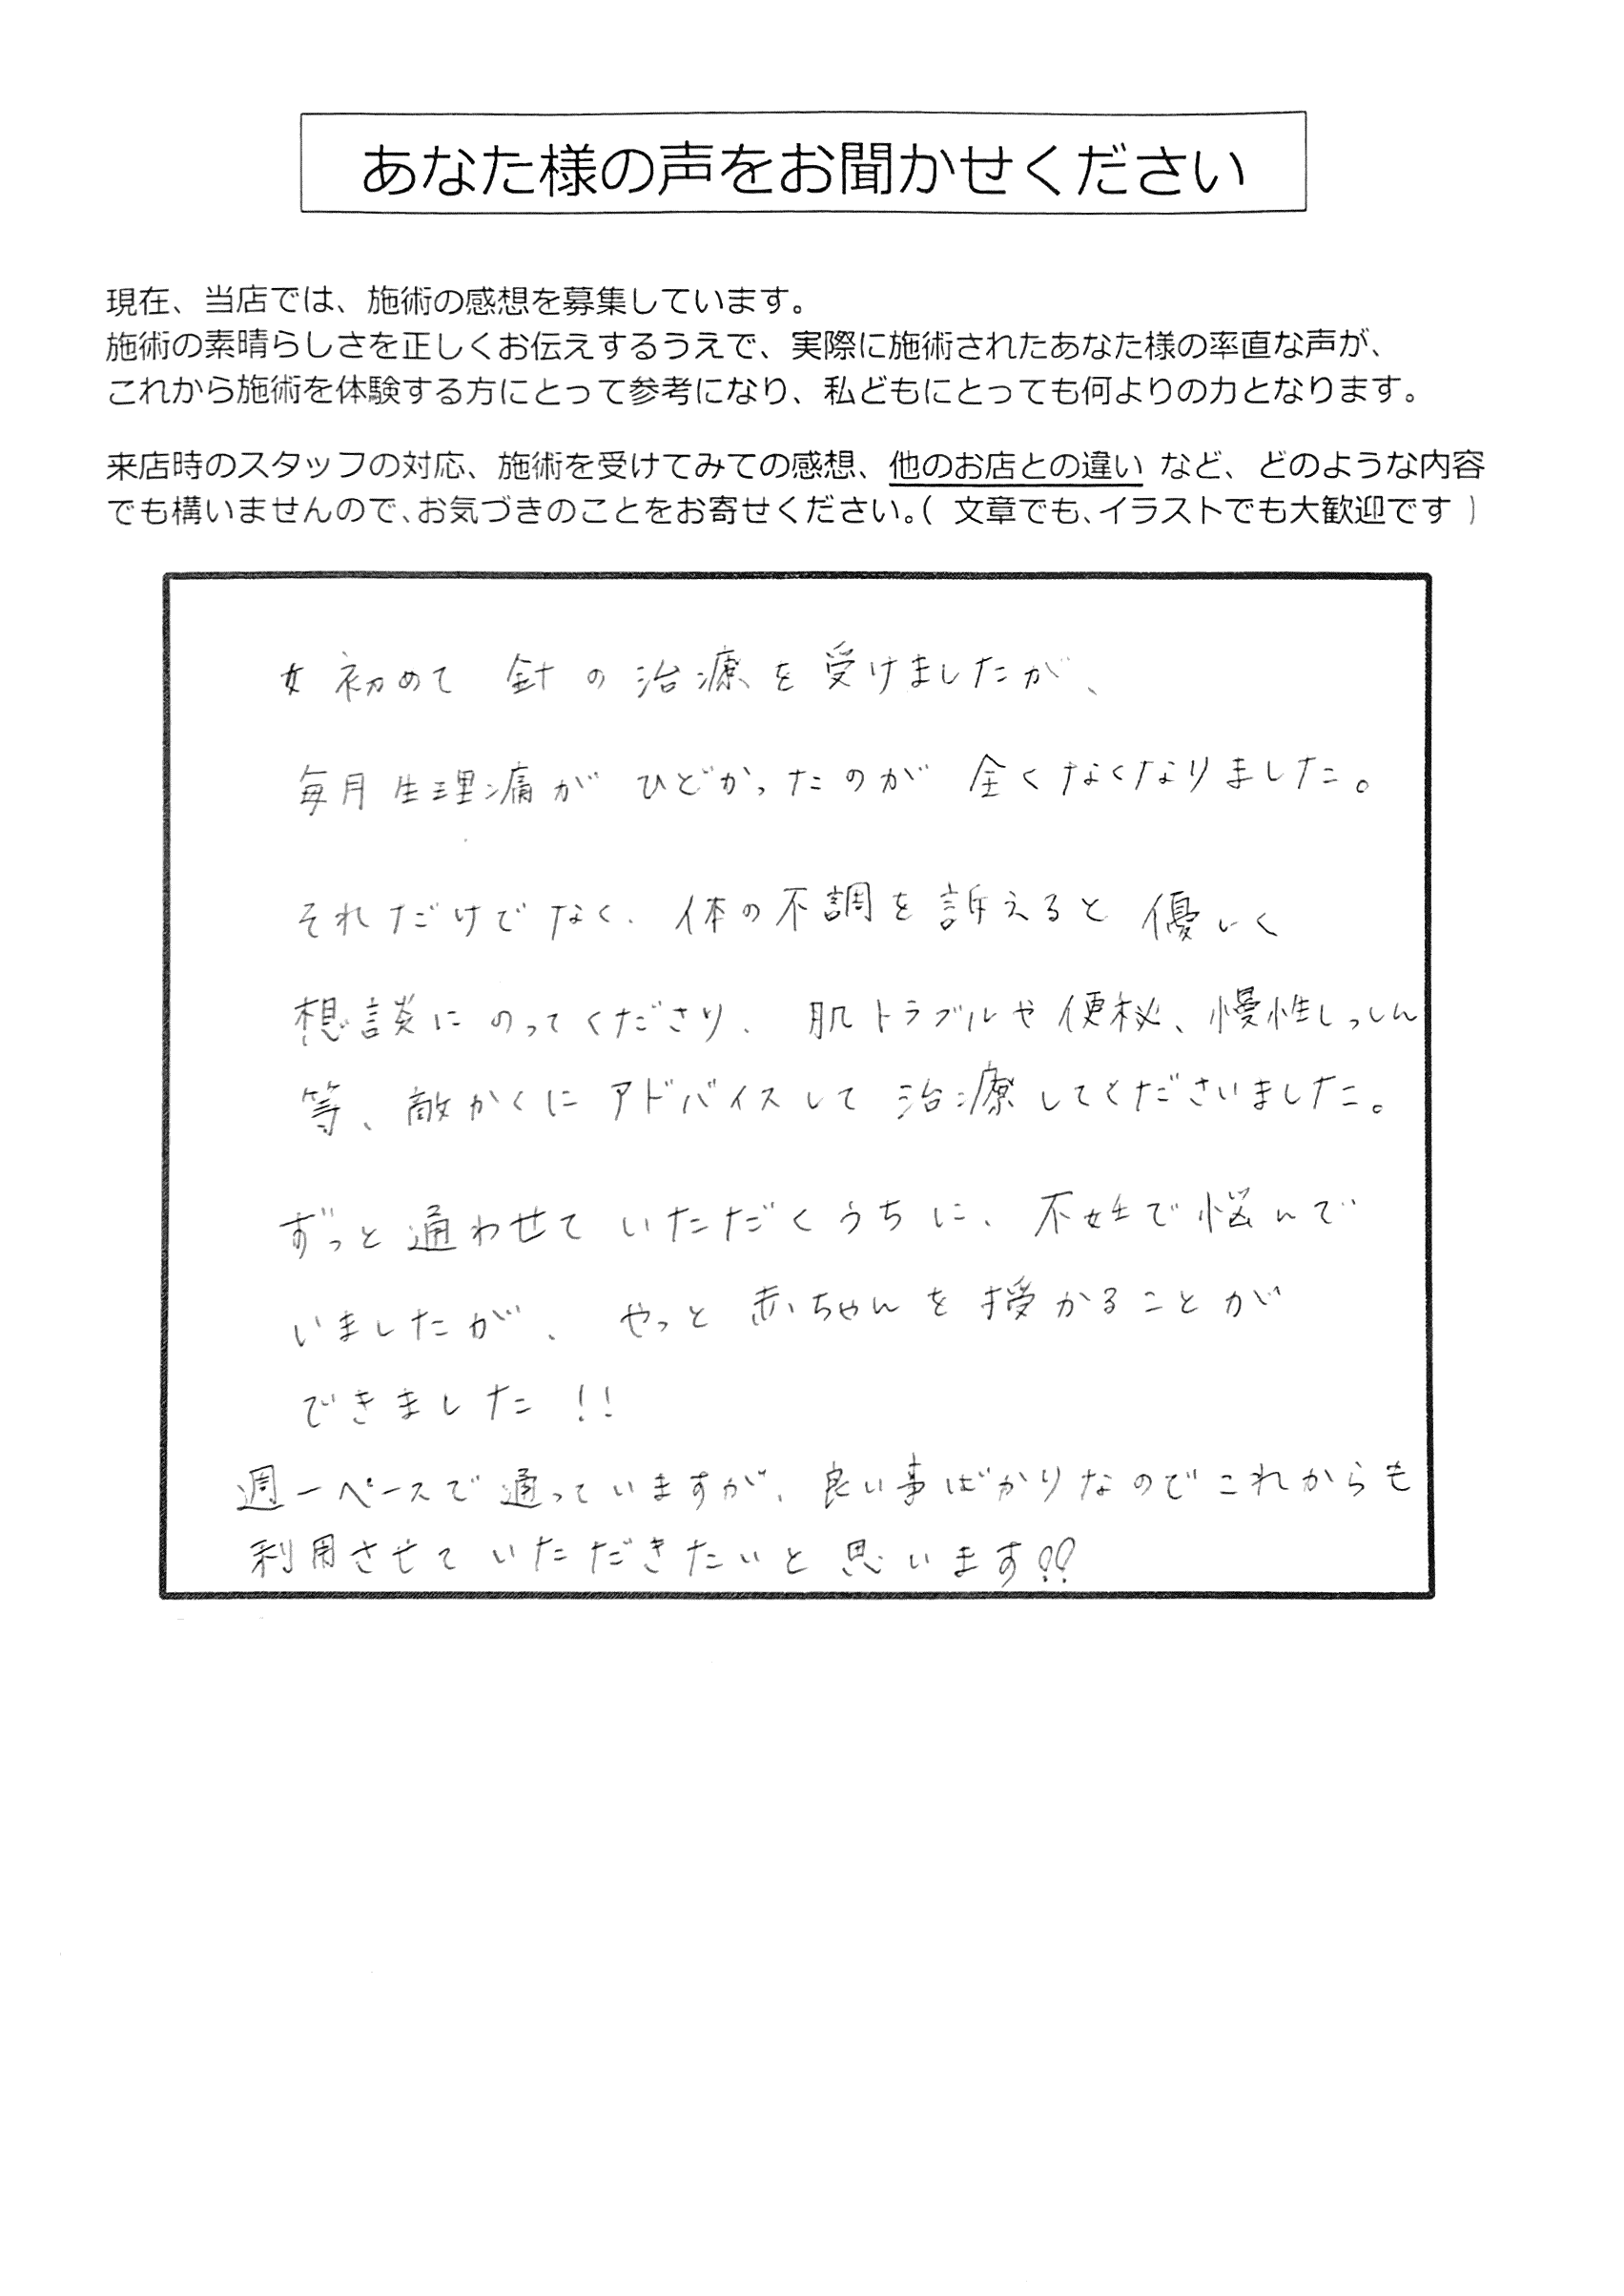 あなた様の声をお聞かせください
現在、当店では、施術の感想を募集しています。
施術の素晴らしさを正しくお伝えするうえで、実際に施術されたあなた様の率直な声が、
これから施術を体験する方にとって参考になり、私どもにとっても何よりの力となります。
来店時のスタッフの対応、施術を受けてみての感想、他のお店との違い など、どのような内容
でも構いませんので、お気づきのことをお寄せください。( 文章でも、イラストでも大歓迎です )
初めて 針の治療を受けましたが、
毎月生理痛が ひどかったのが 全くなくなりました。
それだけでなく、体の不調を訴えると 優しく
想談にのってくださり、肌トラブルや便秘、慢性しっしん
等、敵かくに アドバイスして 治療してくださいました。
ずっと通わせて いただくうちに、不妊で悩んで
いましたが、やっと赤ちゃんを授かることが
できました!!
週一ペースで通っていますが、良い事ばかりなのでこれからも
利用させていただきたいと思います!!